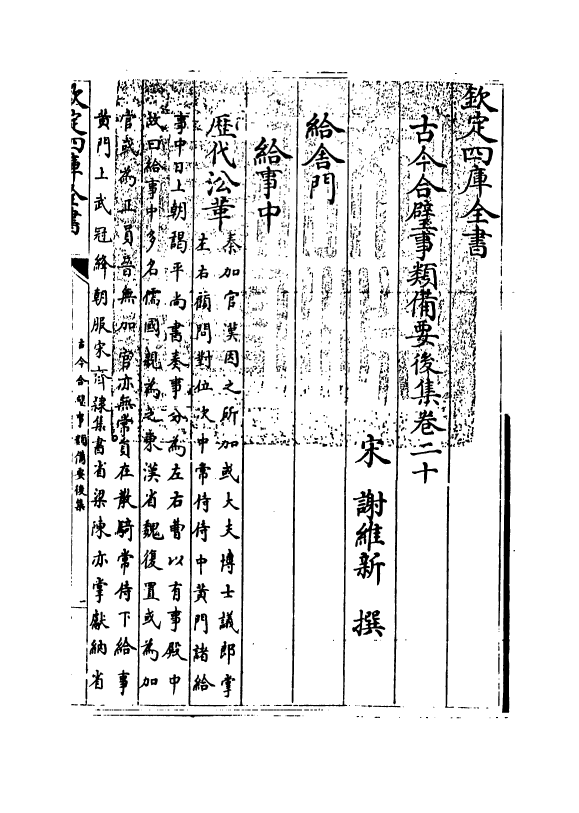 欽定四庫全書
古今合璧事類備要後集卷二十
宋 謝維新 撰
給舍門
給事中
歷代沿革
秦加官漢因之所加或大夫博士議郎掌
左右顧問對位次中常侍侍中黄門諸給
事中日上朝謁平尚書奏事分為左右曹以有事殿中
故曰給事中多名儒國親為之東漢省魏復置或為加
官或為正員晉無加官亦無常員在散騎常侍下給事
黄門上武冠絳朝服宋齊隸集書省梁陳亦掌獻納省
欽定四庫全書
古今合璧事類備要後集
一